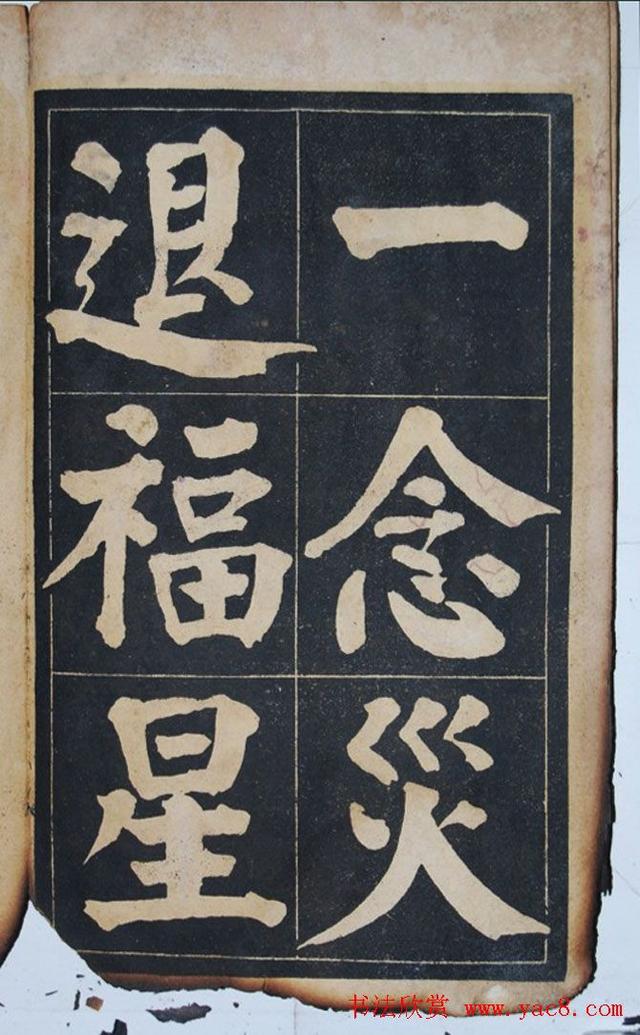 一念災
退福星
书法欣赏 www.yac8.com